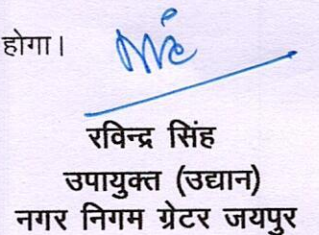 होगा।
रविन्द्र सिंह
उपायुक्त (उद्यान)
नगर निगम ग्रेटर जयपुर